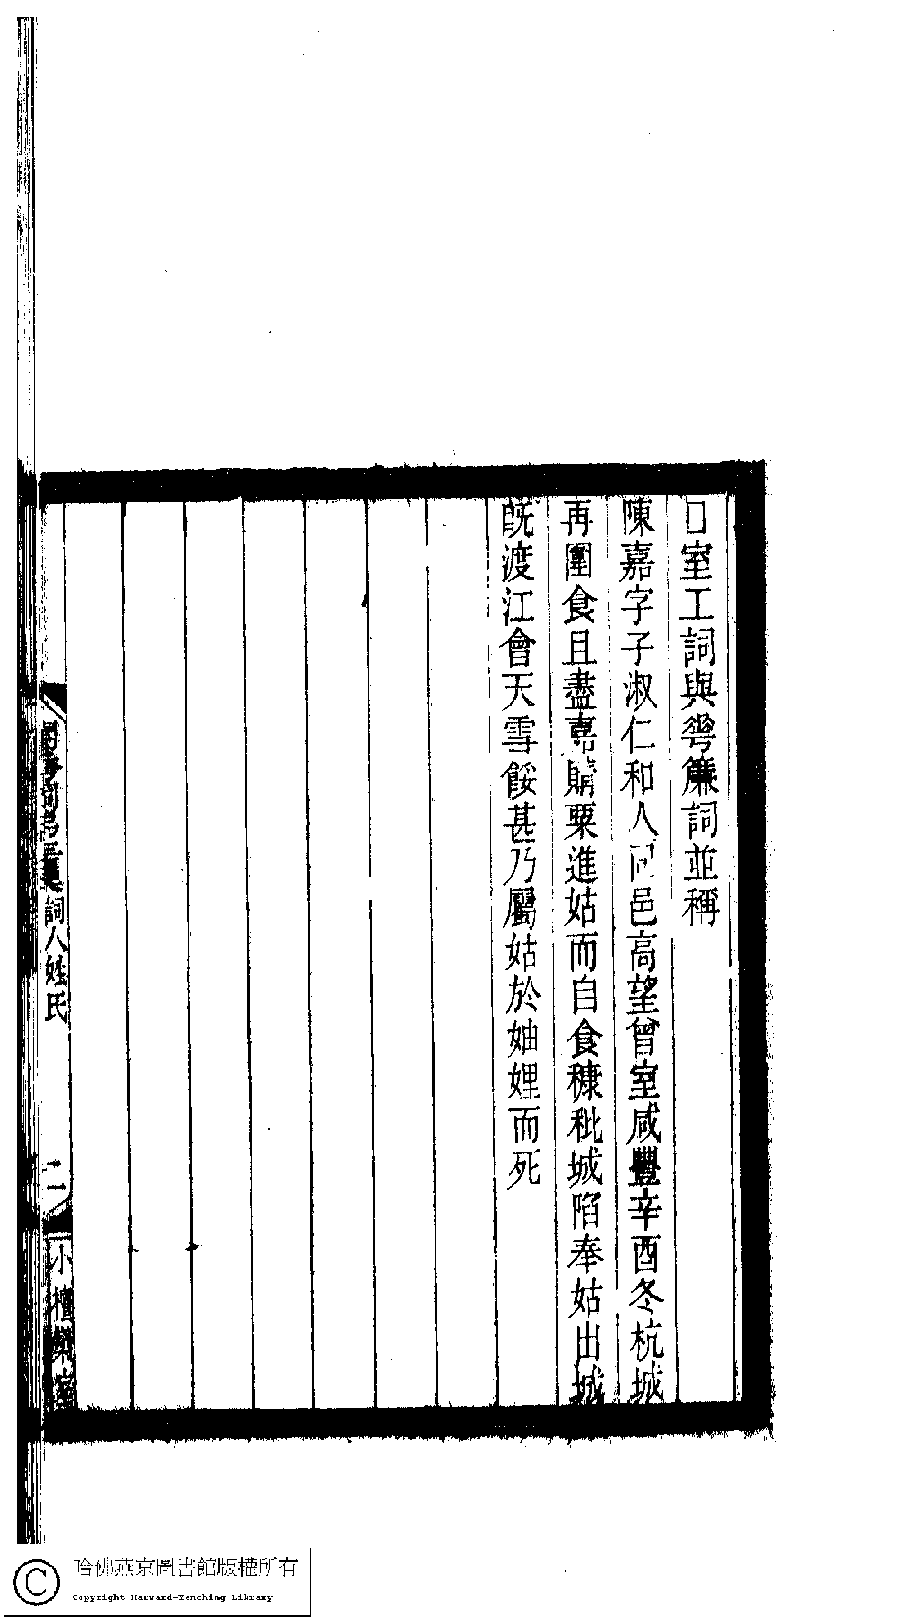 口室工詞與蘋簾詞並稱
陳嘉字子淑仁和人同邑高望曾室咸豐辛酉冬杭城
再圍食且盡嘉購粟進姑而自食穅秕城陷奉姑出城
既渡江會天雪餒甚乃屬姑於妯娌而死
詞人姓氏
二
小檀欒室
哈佛燕京圖書館版權所有
Copyright Harvard-Yenching Library